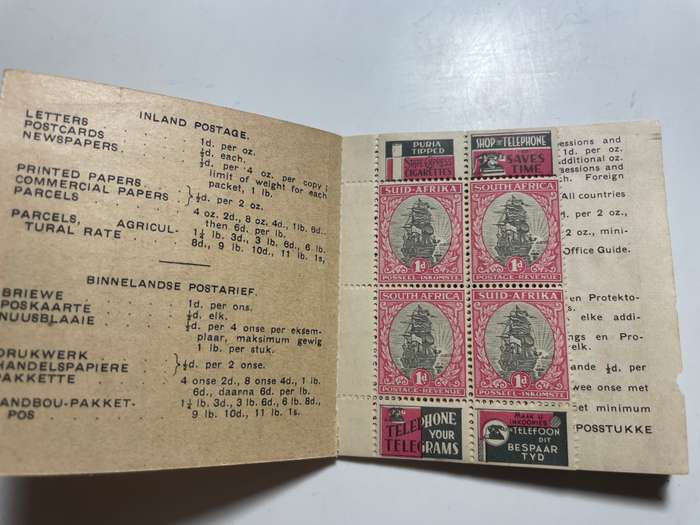 INLAND POSTAGE.
LETTERS . . 1d. per oz.
POSTCARDS . . ½d. each.
NEWSPAPERS. . . ½d. per 4 oz. per copy;
limit of weight for each
packet, 1 lb.
PRINTED PAPERS
COMMERCIAL PAPERS } ½d. per 2 oz.
PARCELS . . 4 oz. 2d., 8 oz. 4d., 1lb. 6d.,
then 6d. per lb.
PARCELS, AGRICUL-
TURAL RATE . . 1½ lb. 3d., 3 lb. 6d., 6 lb.
8d., 9 lb. 10d., 11 lb. 1s.
BINNELANDSE POSTARIEF.
BRIEWE . . 1d. per ons.
POSKAARTE . . ½d. elk.
NUUSBLAAIE . . ½d. per 4 onse per eksem-
plaar, maksimum gewig
1 lb. per stuk.
DRUKWERK
HANDELSPAPIERE } ½d. per 2 onse.
PAKKETTE . . 4 onse 2d., 8 onse 4d., 1 lb.
6d., daarna 6d. per lb.
LANDBOU-PAKKET-
POS . . 1½ lb. 3d., 3 lb. 6d., 6 lb. 8d.,
9 lb. 10d., 11 lb. 1s.
PURIA
TIPPED
CIGARETTES
SHOP BY TELEPHONE
SAVES
TIME
SUID-AFRIKA
1d
POSSEEL-INKOMSTE
SOUTH AFRICA
1d
POSTAGE-REVENUE
SOUTH AFRICA
1d
POSTAGE-REVENUE
SUID-AFRIKA
1d
POSSEEL-INKOMSTE
TELEPHONE
YOUR
TELEGRAMS
MAAK U
INKOPIES
PER TELEFOON
DIT
BESPAAR
TYD
sessions and
1d. per oz.
additional oz.
sessions and
ch. Foreign
All countries
d. per 2 oz.,
2 oz., mini-
Office Guide.
en Protekto-
elke addi-
ngs en Pro-
relk.
lande ½d. per
wee onse met
t minimum
POSSTUKKE